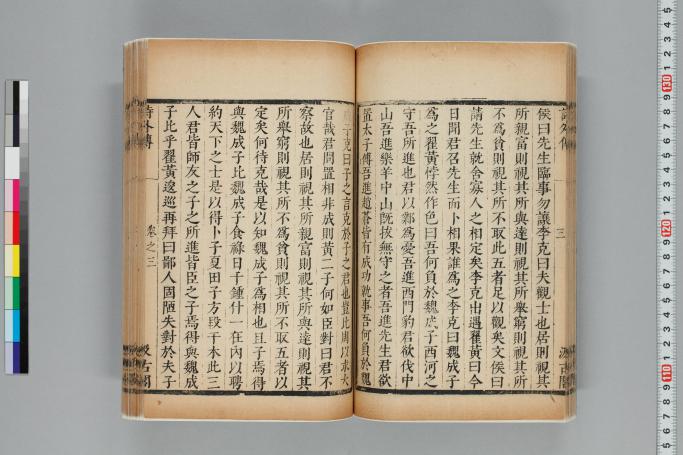 侯曰先生臨事勿讓李克曰夫觀士也居則視其
所親富則視其所與達則視其所舉窮則視其所
不爲貧則視其所不取此五者足以觀矣文侯曰
請先生就舍寡人之相定矣李克出遇翟黃曰今
日聞君召先生而卜相果誰爲之李克曰魏成子
爲之翟黃悖然作色曰吾何負於魏成子西河之
守吾所進也君以鄴爲憂吾進西門豹君欲伐中
山吾進樂羊中山旣拔無守之者吾進先生君欲
置太子傅吾進趙蒼皆有成功就事吾何負於魏
成子克曰子之言克於子之君也豈比周以求大
官哉君問置相非成則黃二子何如臣對曰君不
察故也居則視其所親富則視其所與達則視其
所舉窮則視其所不爲貧則視其所不取五者以
定矣何待克哉是以知魏成子爲相也且子焉得
與魏成子比魏成子食祿日千鍾什一在內以聘
約天下之士是以得卜子夏田子方段干木此三
人君皆師友之子之所進皆臣之子焉得與魏成
子比乎翟黃逡巡再拜曰鄙人固陋失對於夫子
詩外傳
卷之三
汲古閣
三